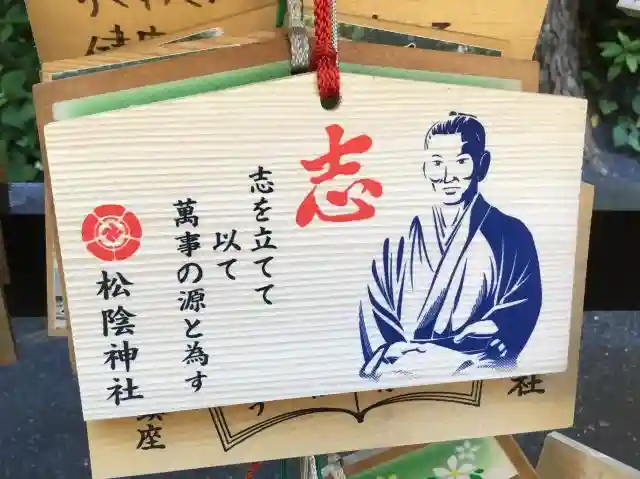 志
志を立てて
以て
萬事の源と為す
松陰神社
座
社
健